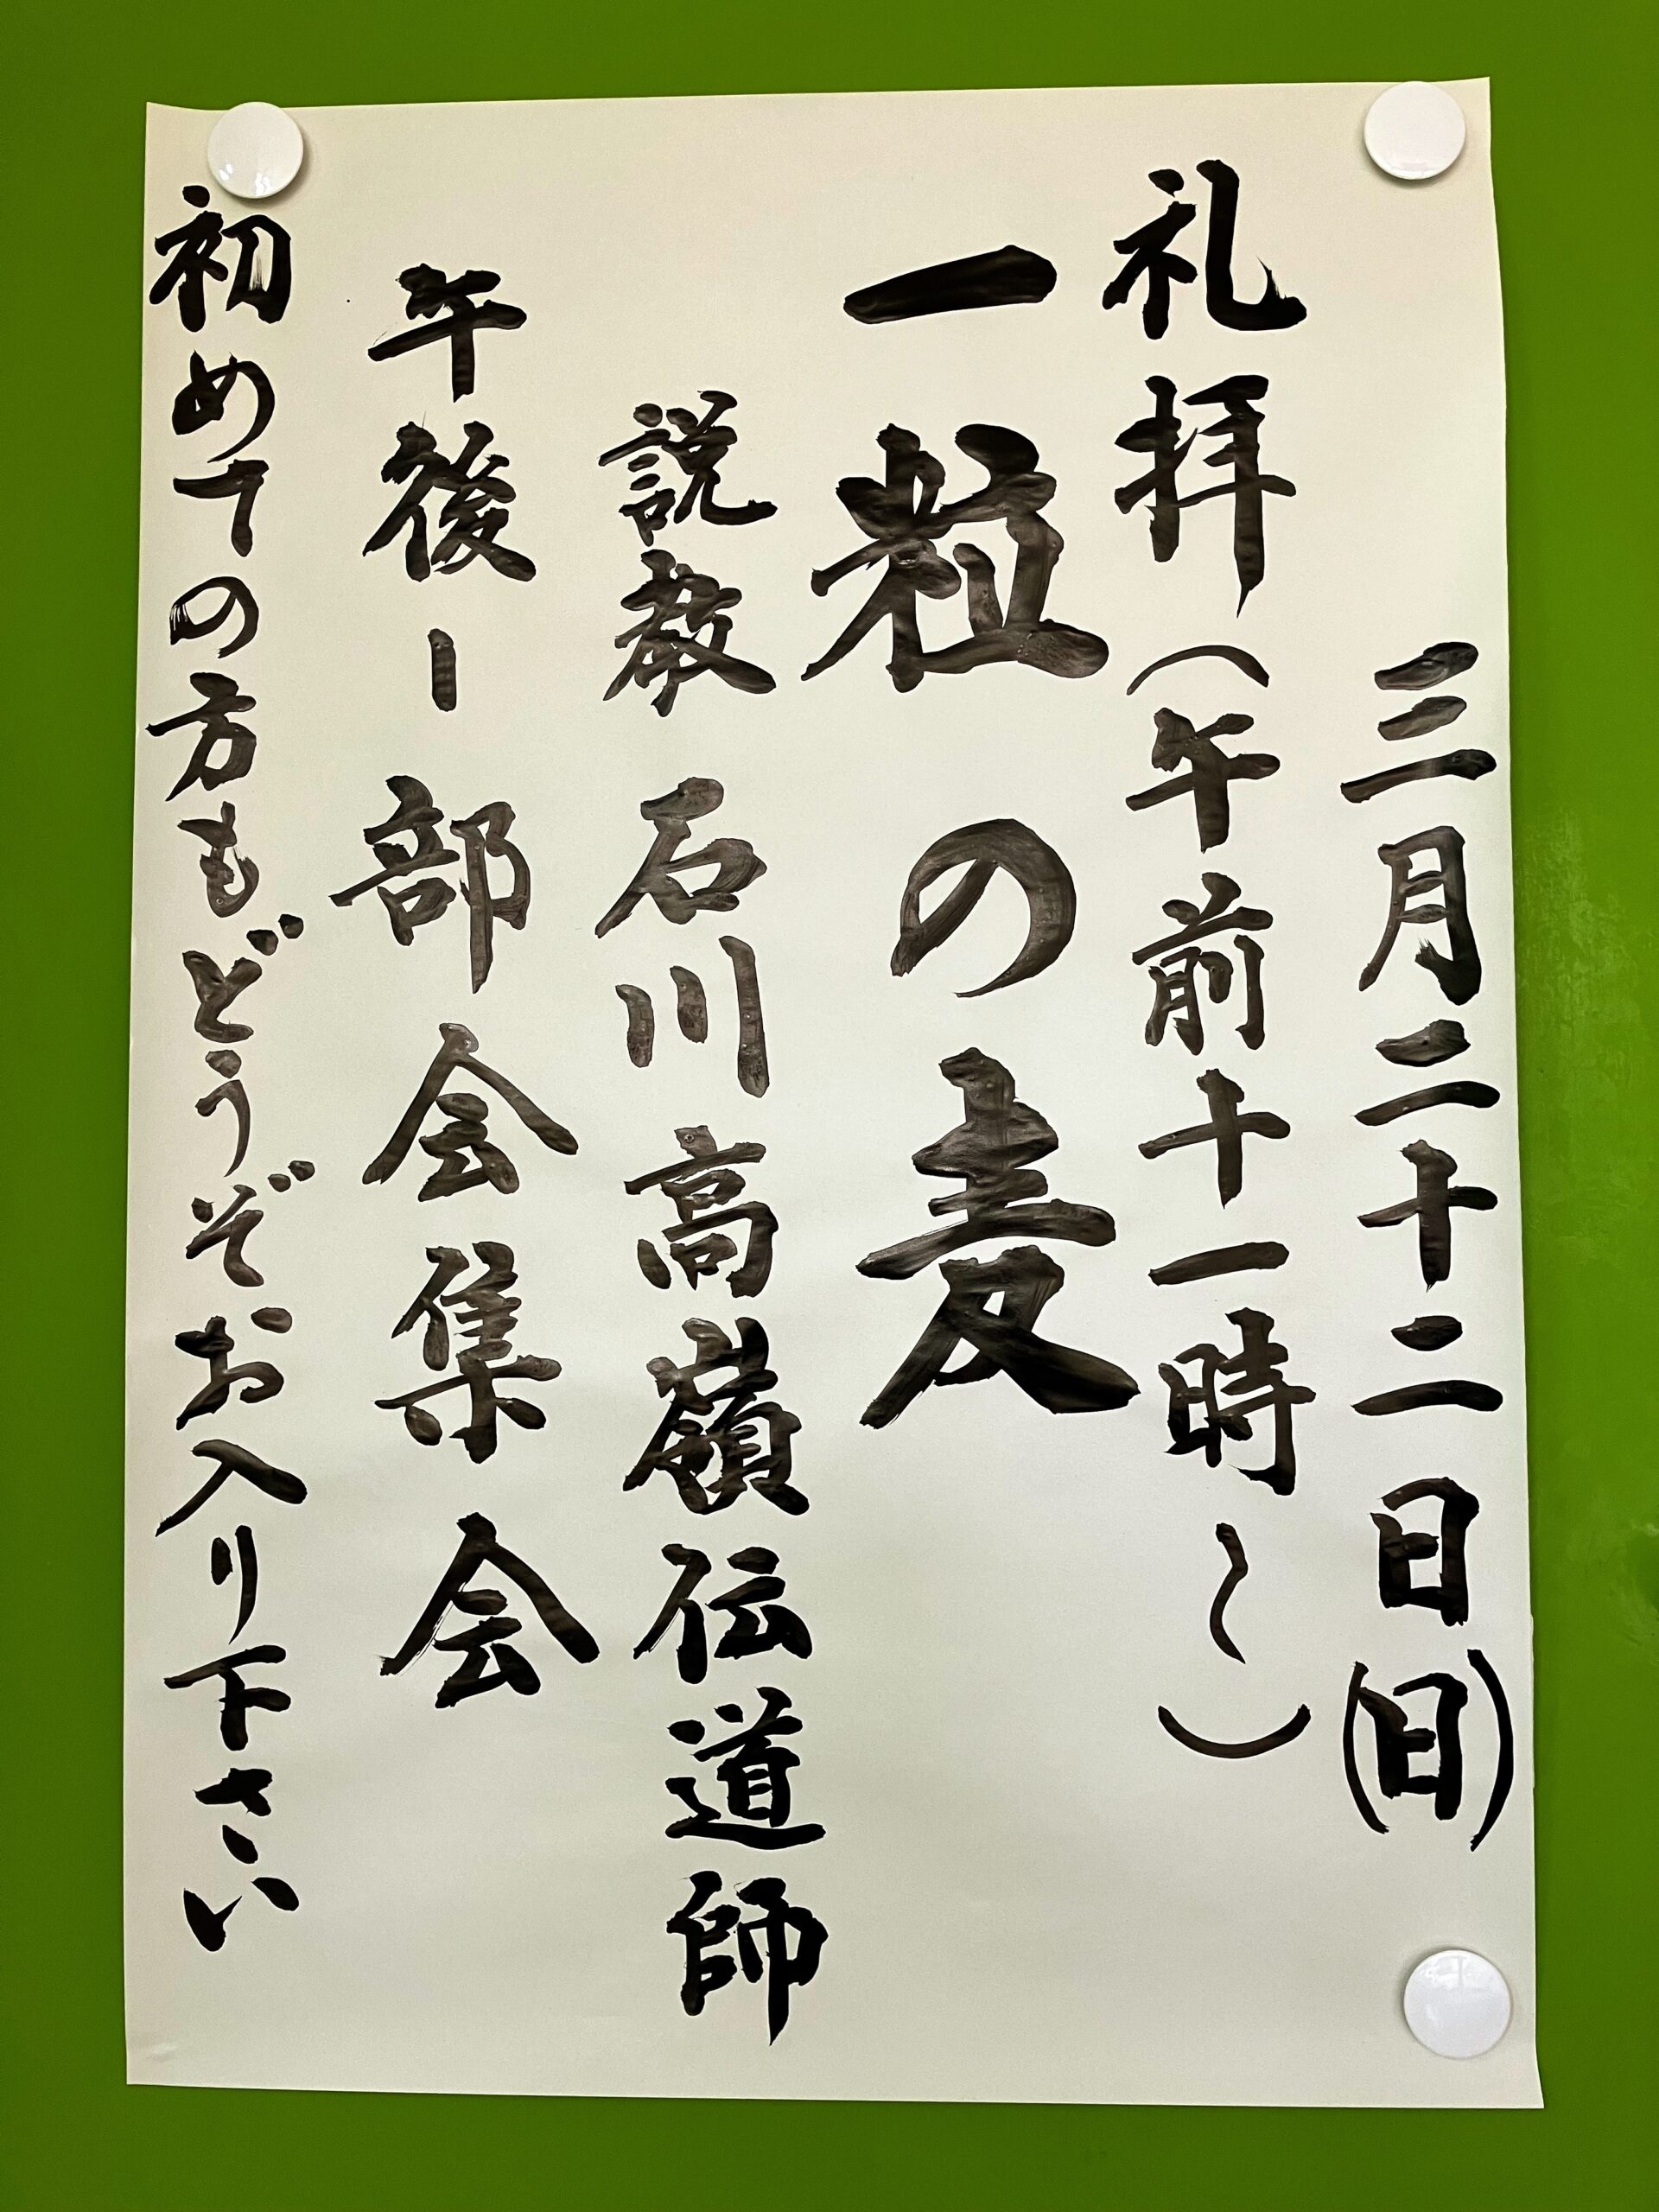 三月二十二日(日)
礼拝(午前十一時～)
一粒の麦
説教 石川高嶺伝道師
午後ー部会集会
初めての方もどうぞお入り下さい